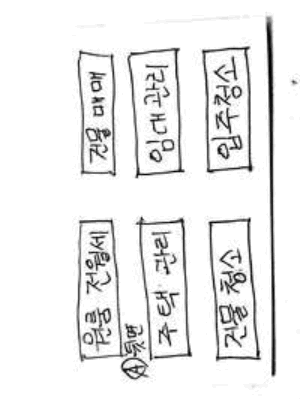 원룸 전월세 건물매매
Ⓐ뒷면
주택 관리 임대관리
건물 청소 입주청소